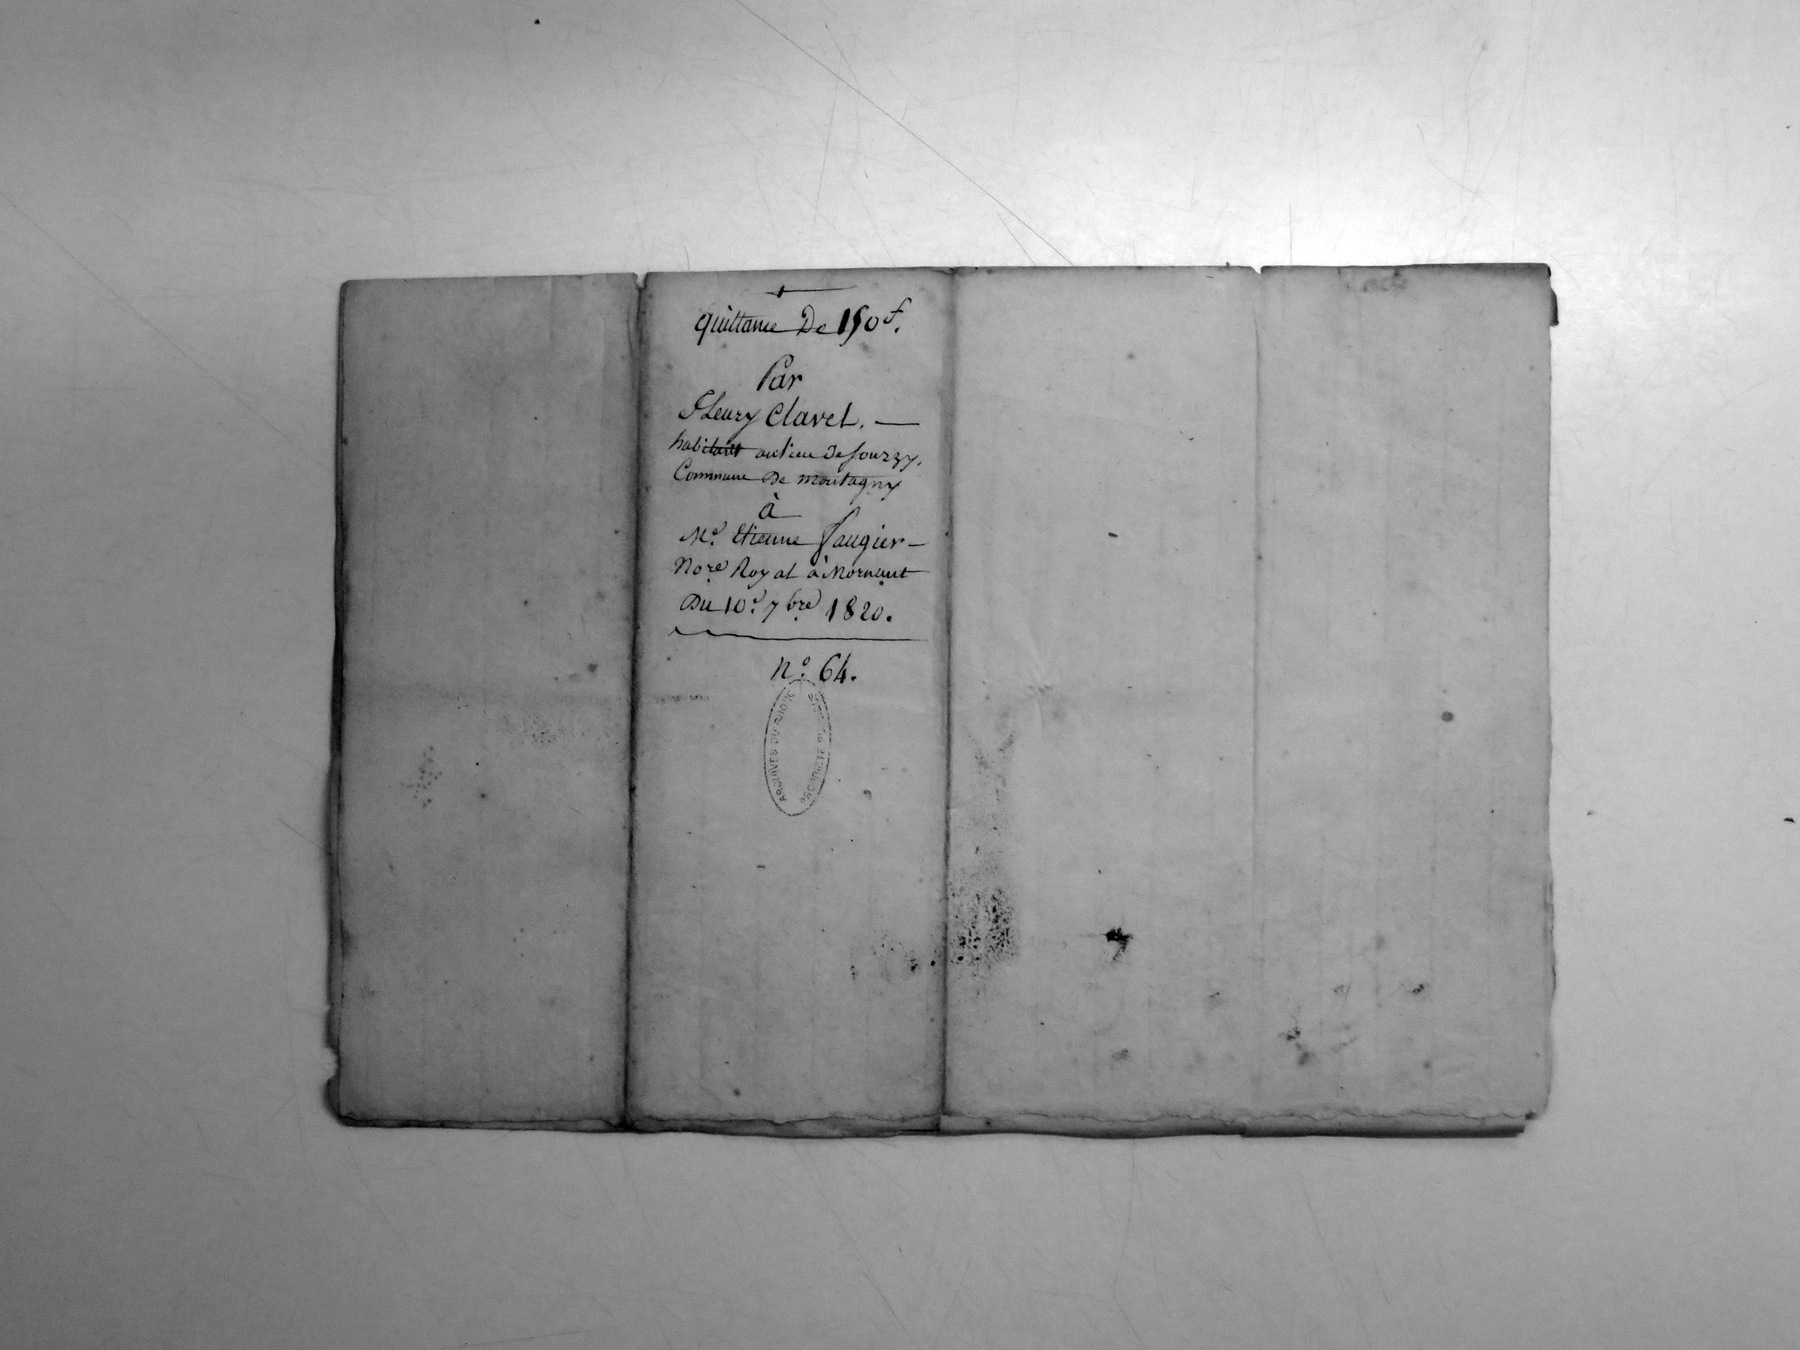 quittance De 150f.
Par
Fleury Clavel. —
habitant au lieu de Sourzy,
Commune De montagny
à
Me. Etienne faugier —
Nore. Royal à Mornant
Du 10e. 7bre. 1820.
n°. 64.
ARCHIVES DU RHÔNE
PROPRIÉTÉ PUBLIQUE